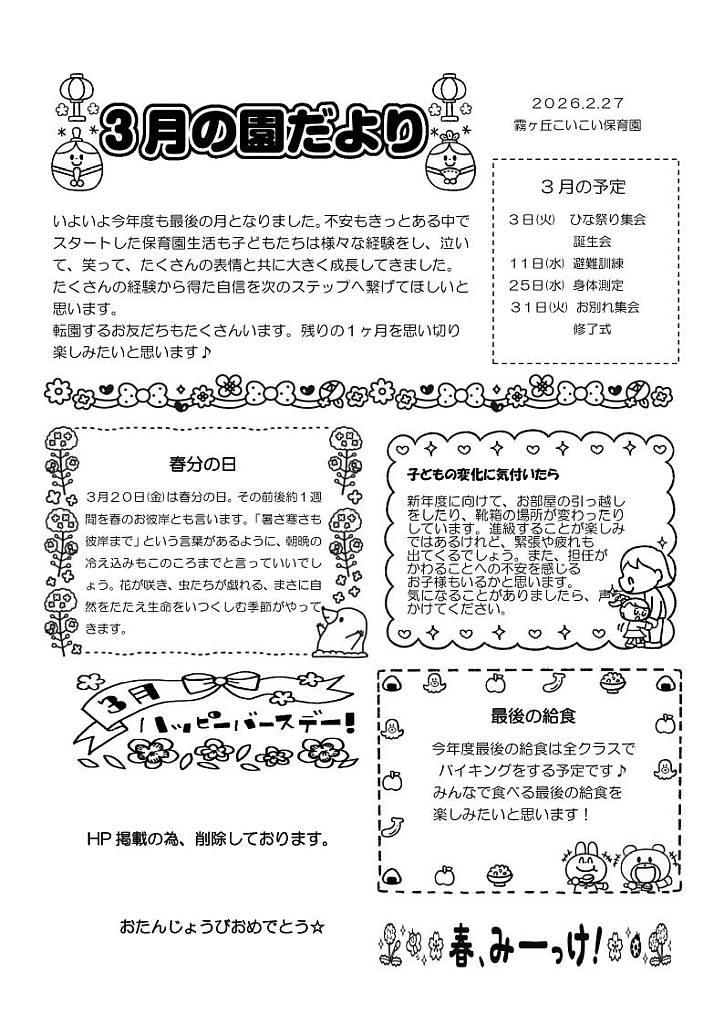 3月の園だより
2026.2.27
霧ヶ丘こいこい保育園
いよいよ今年度も最後の月となりました。不安もきっとある中で
スタートした保育園生活も子どもたちは様々な経験をし、泣い
て、笑って、たくさんの表情と共に大きく成長してきました。
たくさんの経験から得た自信を次のステップへ繋げてほしいと
思います。
転園するお友だちもたくさんいます。残りの1ヶ月を思い切り
楽しみたいと思います♪
3月の予定
3日(火) ひな祭り集会
誕生会
11日(水) 避難訓練
25日(水) 身体測定
31日(火) お別れ集会
修了式
春分の日
3月20日(金)は春分の日。その前後約1週
間を春のお彼岸とも言います。「暑さ寒さも
彼岸まで」という言葉があるように、朝晩の
冷え込みもこのころまでと言っていいでし
ょう。花が咲き、虫たちが戯れる、まさに自
然をたたえ生命をいつくしむ季節がやって
きます。
子どもの変化に気付いたら
新年度に向けて、お部屋の引っ越し
をしたり、靴箱の場所が変わったり
しています。進級することが楽しみ
ではあるけれど、緊張や疲れも
出てくるでしょう。また、担任が
かわることへの不安を感じる
お子様もいるかと思います。
気になることがありましたら、声
かけてください。
3月
ハッピーバースデー!
HP掲載の為、削除しております。
おたんじょうびおめでとう☆
最後の給食
今年度最後の給食は全クラスで
バイキングをする予定です♪
みんなで食べる最後の給食を
楽しみたいと思います！
春、みーっけ!